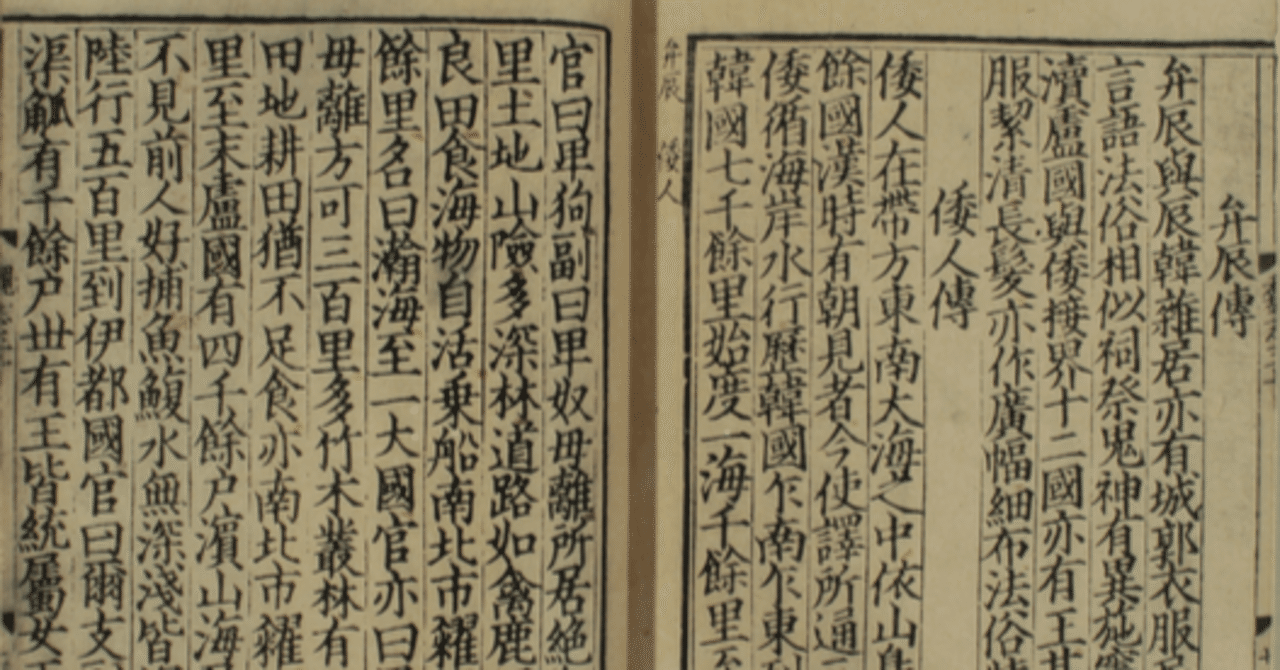 弁辰傳
弁辰與辰韓雜居亦有城郭衣服
言語法俗相似祠祭鬼神有異施
瀆盧國與倭接界十二國亦有王其
服絜清長髮亦作廣幅細布法俗
倭人傳
倭人在帶方東南大海之中依山島
餘國漢時有朝見者今使譯所通三
倭循海岸水行歷韓國乍南乍東到
韓國七千餘里始度一海千餘里至
弁辰 倭人
官曰卑狗副曰卑奴毋離所居絶
里土地山險多深林道路如禽鹿
良田食海物自活乗船南北市糴
餘里名曰瀚海至一大國官亦曰
毋離方可三百里多竹木叢林有
田地耕田猶不足食亦南北市糴
里至末盧國有四千餘户濱山海
不見前人好捕魚鰒水無深淺皆
陸行五百里到伊都國官曰爾支
渠觚有千餘户丗有王皆統屬女